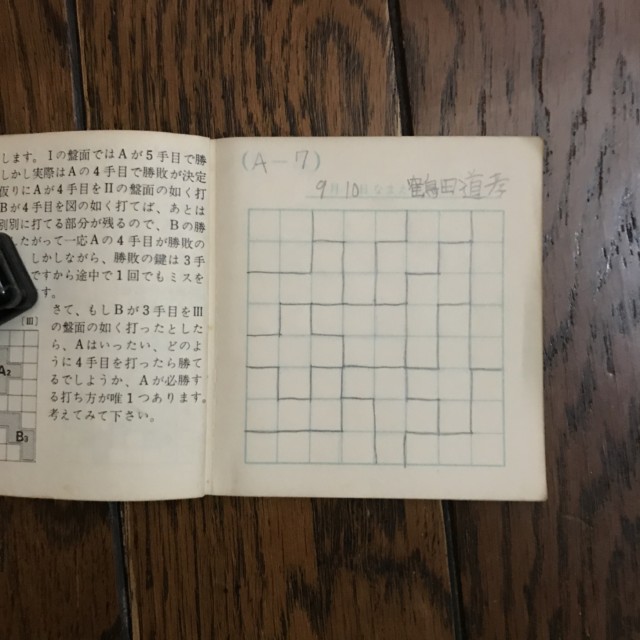 します。Iの盤面ではAが5手目で勝
しかし実際はAの4手目で勝敗が決定
仮りにAが4手目をIIの盤面の如く打
Bが4手目を図の如く打てば、あとは
別別に打てる部分が残るので、Bの勝
たがって一応Aの4手目が勝敗の
しかしながら、勝敗の鍵は3手
ですから途中で1回でもミスを
す。
さて、もしBが3手目をIII
の盤面の如く打ったとした
ら、Aはいったい、どのよ
うに4手目を打ったら勝て
るでしようか、Aが必勝す
る打ち方が唯1つあります。
考えてみて下さい。
〔III〕
A2
B3
(A-7)
9月10日 田道孝